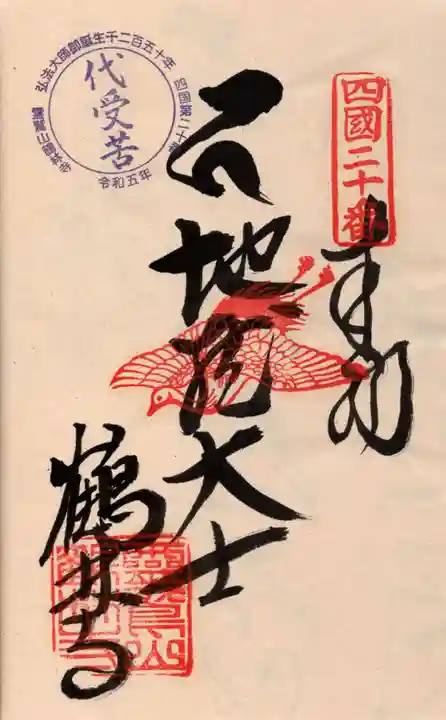 四國二十番
奉拝
地蔵大士
鶴林寺
弘法大師御誕生千二百五十年
四国第二十番
霊鷲山鶴林寺
令和五年
代受苦